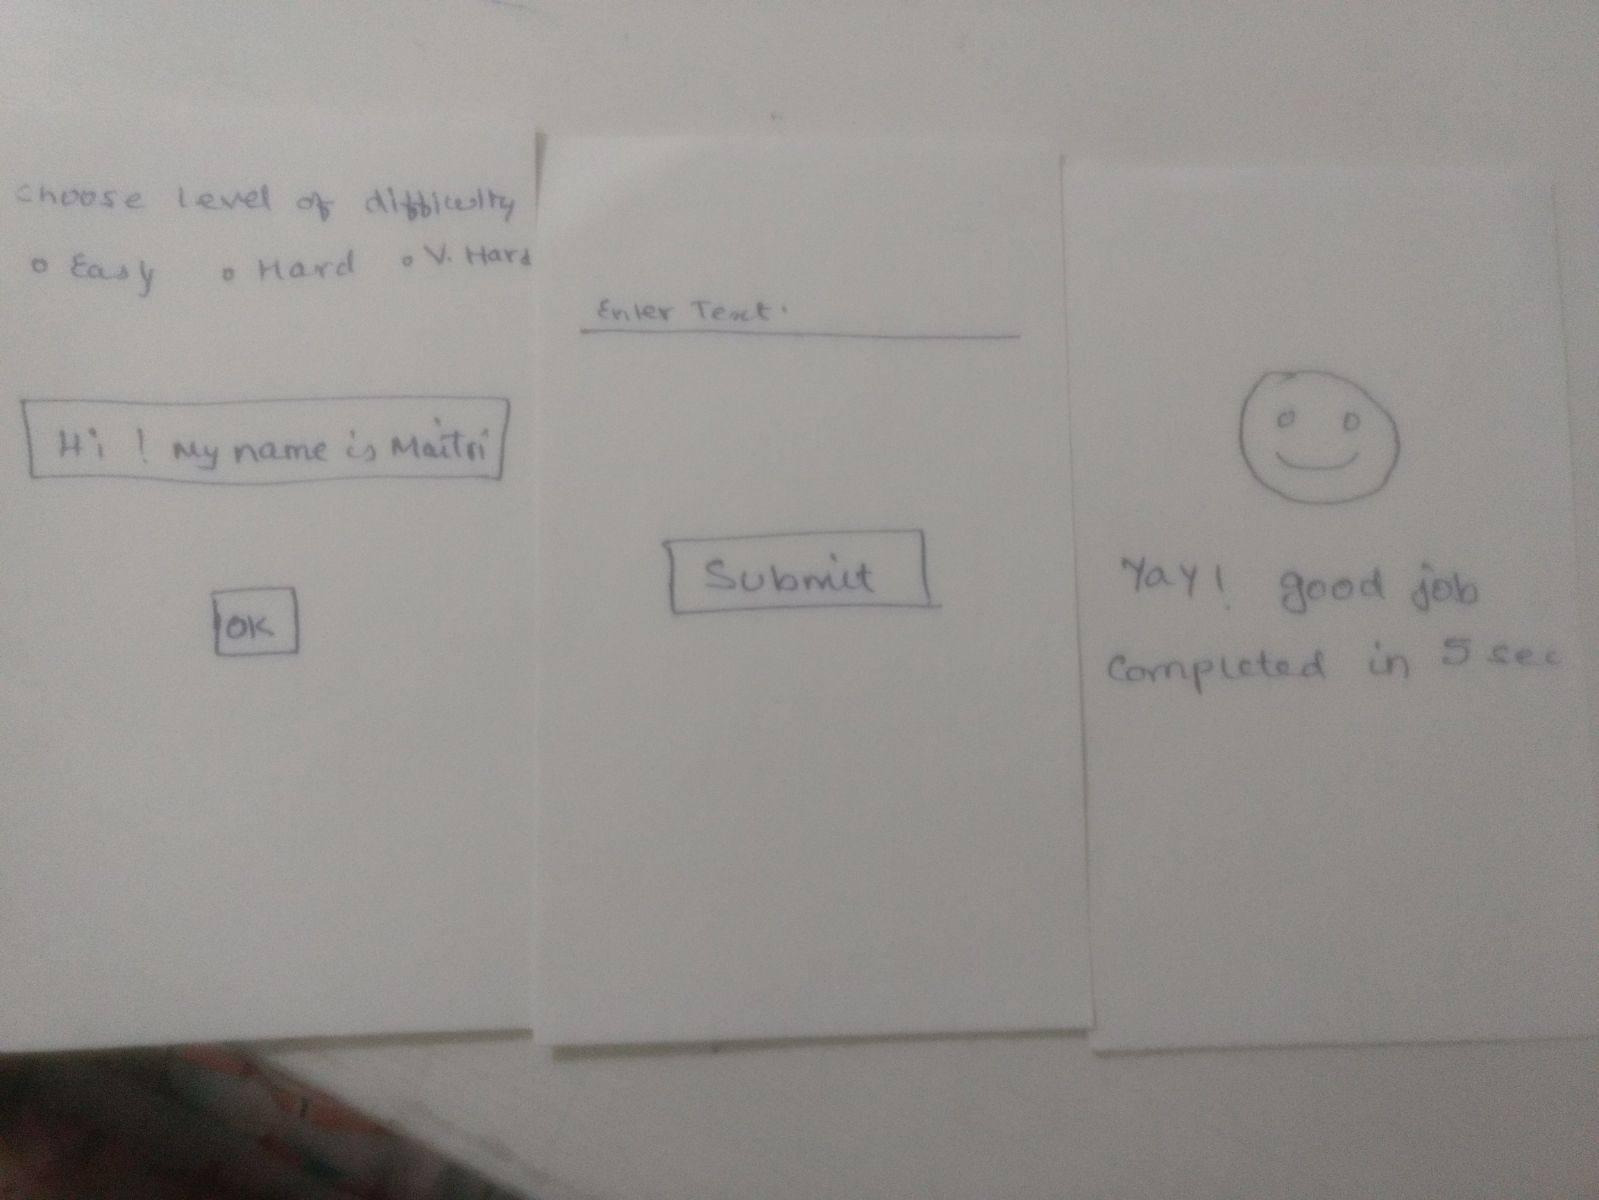 Choose Level of difficulty
Easy Hard V. Hard
Hi ! My name is Maitri
OK
Enter Text:
Submit
Yay! good job
Completed in 5 sec